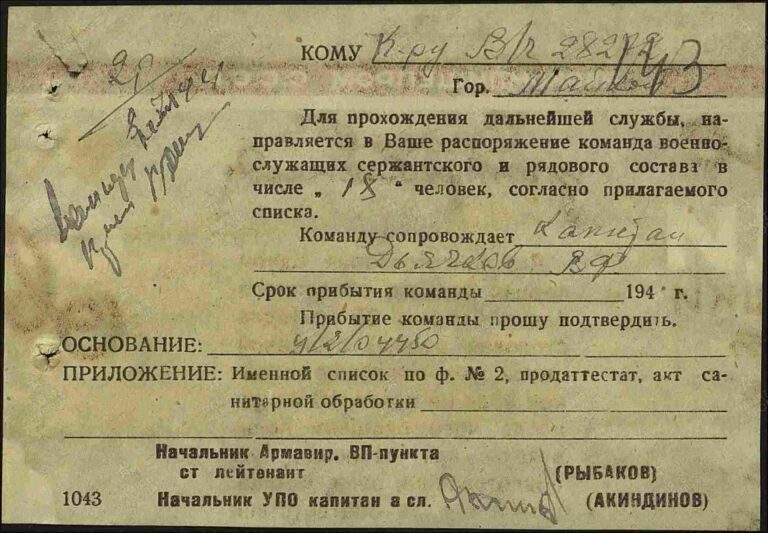 КОМУ К-ру В/ч 28272
143
Гор. Майкоп
20
Для прохождения дальнейшей службы, на-
правляется в Ваше распоряжение команда военно-
служащих сержантского и рядового состава в
числе „ 18 " человек, согласно прилагаемого
списка.
Команду сопровождает Капитан
Дьячков ВФ
Срок прибытия команды 194 г.
Прибытие команды прошу подтвердить.
ОСНОВАНИЕ:
ПРИЛОЖЕНИЕ: Именной список по ф. № 2, продаттестат, акт са-
нитарной обработки
Начальник Армавир. ВП-пункта
ст лейтенант (РЫБАКОВ)
1043 Начальник УПО капитан а сл. (АКИНДИНОВ)